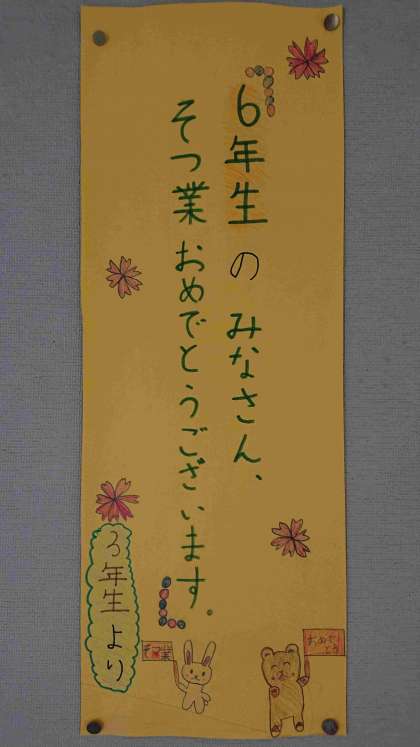 6年生のみなさん、
そつ業おめでとうございます。
3年生より
そつ業
おめでとう